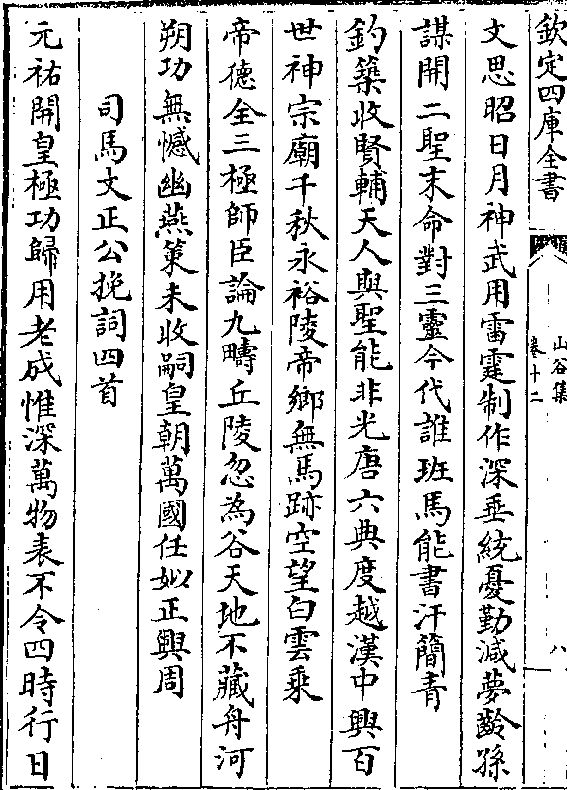 欽定四庫全書
山谷集
卷十二
八
文思昭日月神武用雷霆制作深垂統憂勤減夢齡孫
謀開二聖末命對三靈今代誰班馬能書汗簡青
釣築收賢輔天人與聖能非光唐六典度越漢中興百
世神宗廟千秋永裕陵帝鄉無馬跡空望白雲乗
帝德全三極師臣論九疇丘陵忽為谷天地不藏舟河
朔功無憾幽燕策未收嗣皇朝萬國任姒正興周
司馬文正公挽詞四首
元祐開皇極功歸用老成惟深萬物表不令四時行日